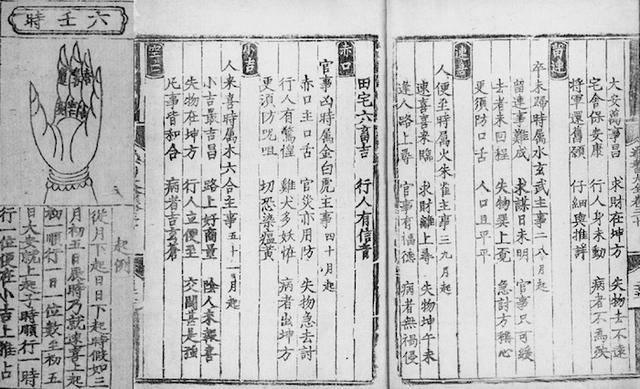 留連
大安萬事昌 求財在坤方 失物去不遠
宅舍保安康 行人身未動 病者不為疾
將軍還舊願 仔細與推詳
卒未歸時属水玄武主事二八月起
留連事難成 求謀日未明 官事只可緩
去者未回程 失物巽上覓 急討方稱心
更須防口舌 人口且平平
速喜
人便至時属火朱雀主事三九月起
速喜喜來臨 求財離上尋 失物坤午未
逢人路上尋 官事有福德 病者無禍侵
田宅六畜吉 行人有信音
赤口
官事凶時属金白虎主事四十月起
赤口主口舌 官災亦用防 失物急去討
行人有驚惶 雞犬多妖怪 病者出坤方
更須防咒咀 切恐染瘟黄
小吉
人來喜時属木六合主事五十一月起
小吉最吉昌 路上好商量 陰人来報喜
失物在坤方 行人立便至 交關甚是強
凡事皆和合 病者告穹蒼
空亡
六壬時
起例
從月下起日日下起時假如三
月初五日辰時乃就速喜上起
初一順行一日一位數至初五
日大安就上起子時順行一時
行一位便在小吉上推占